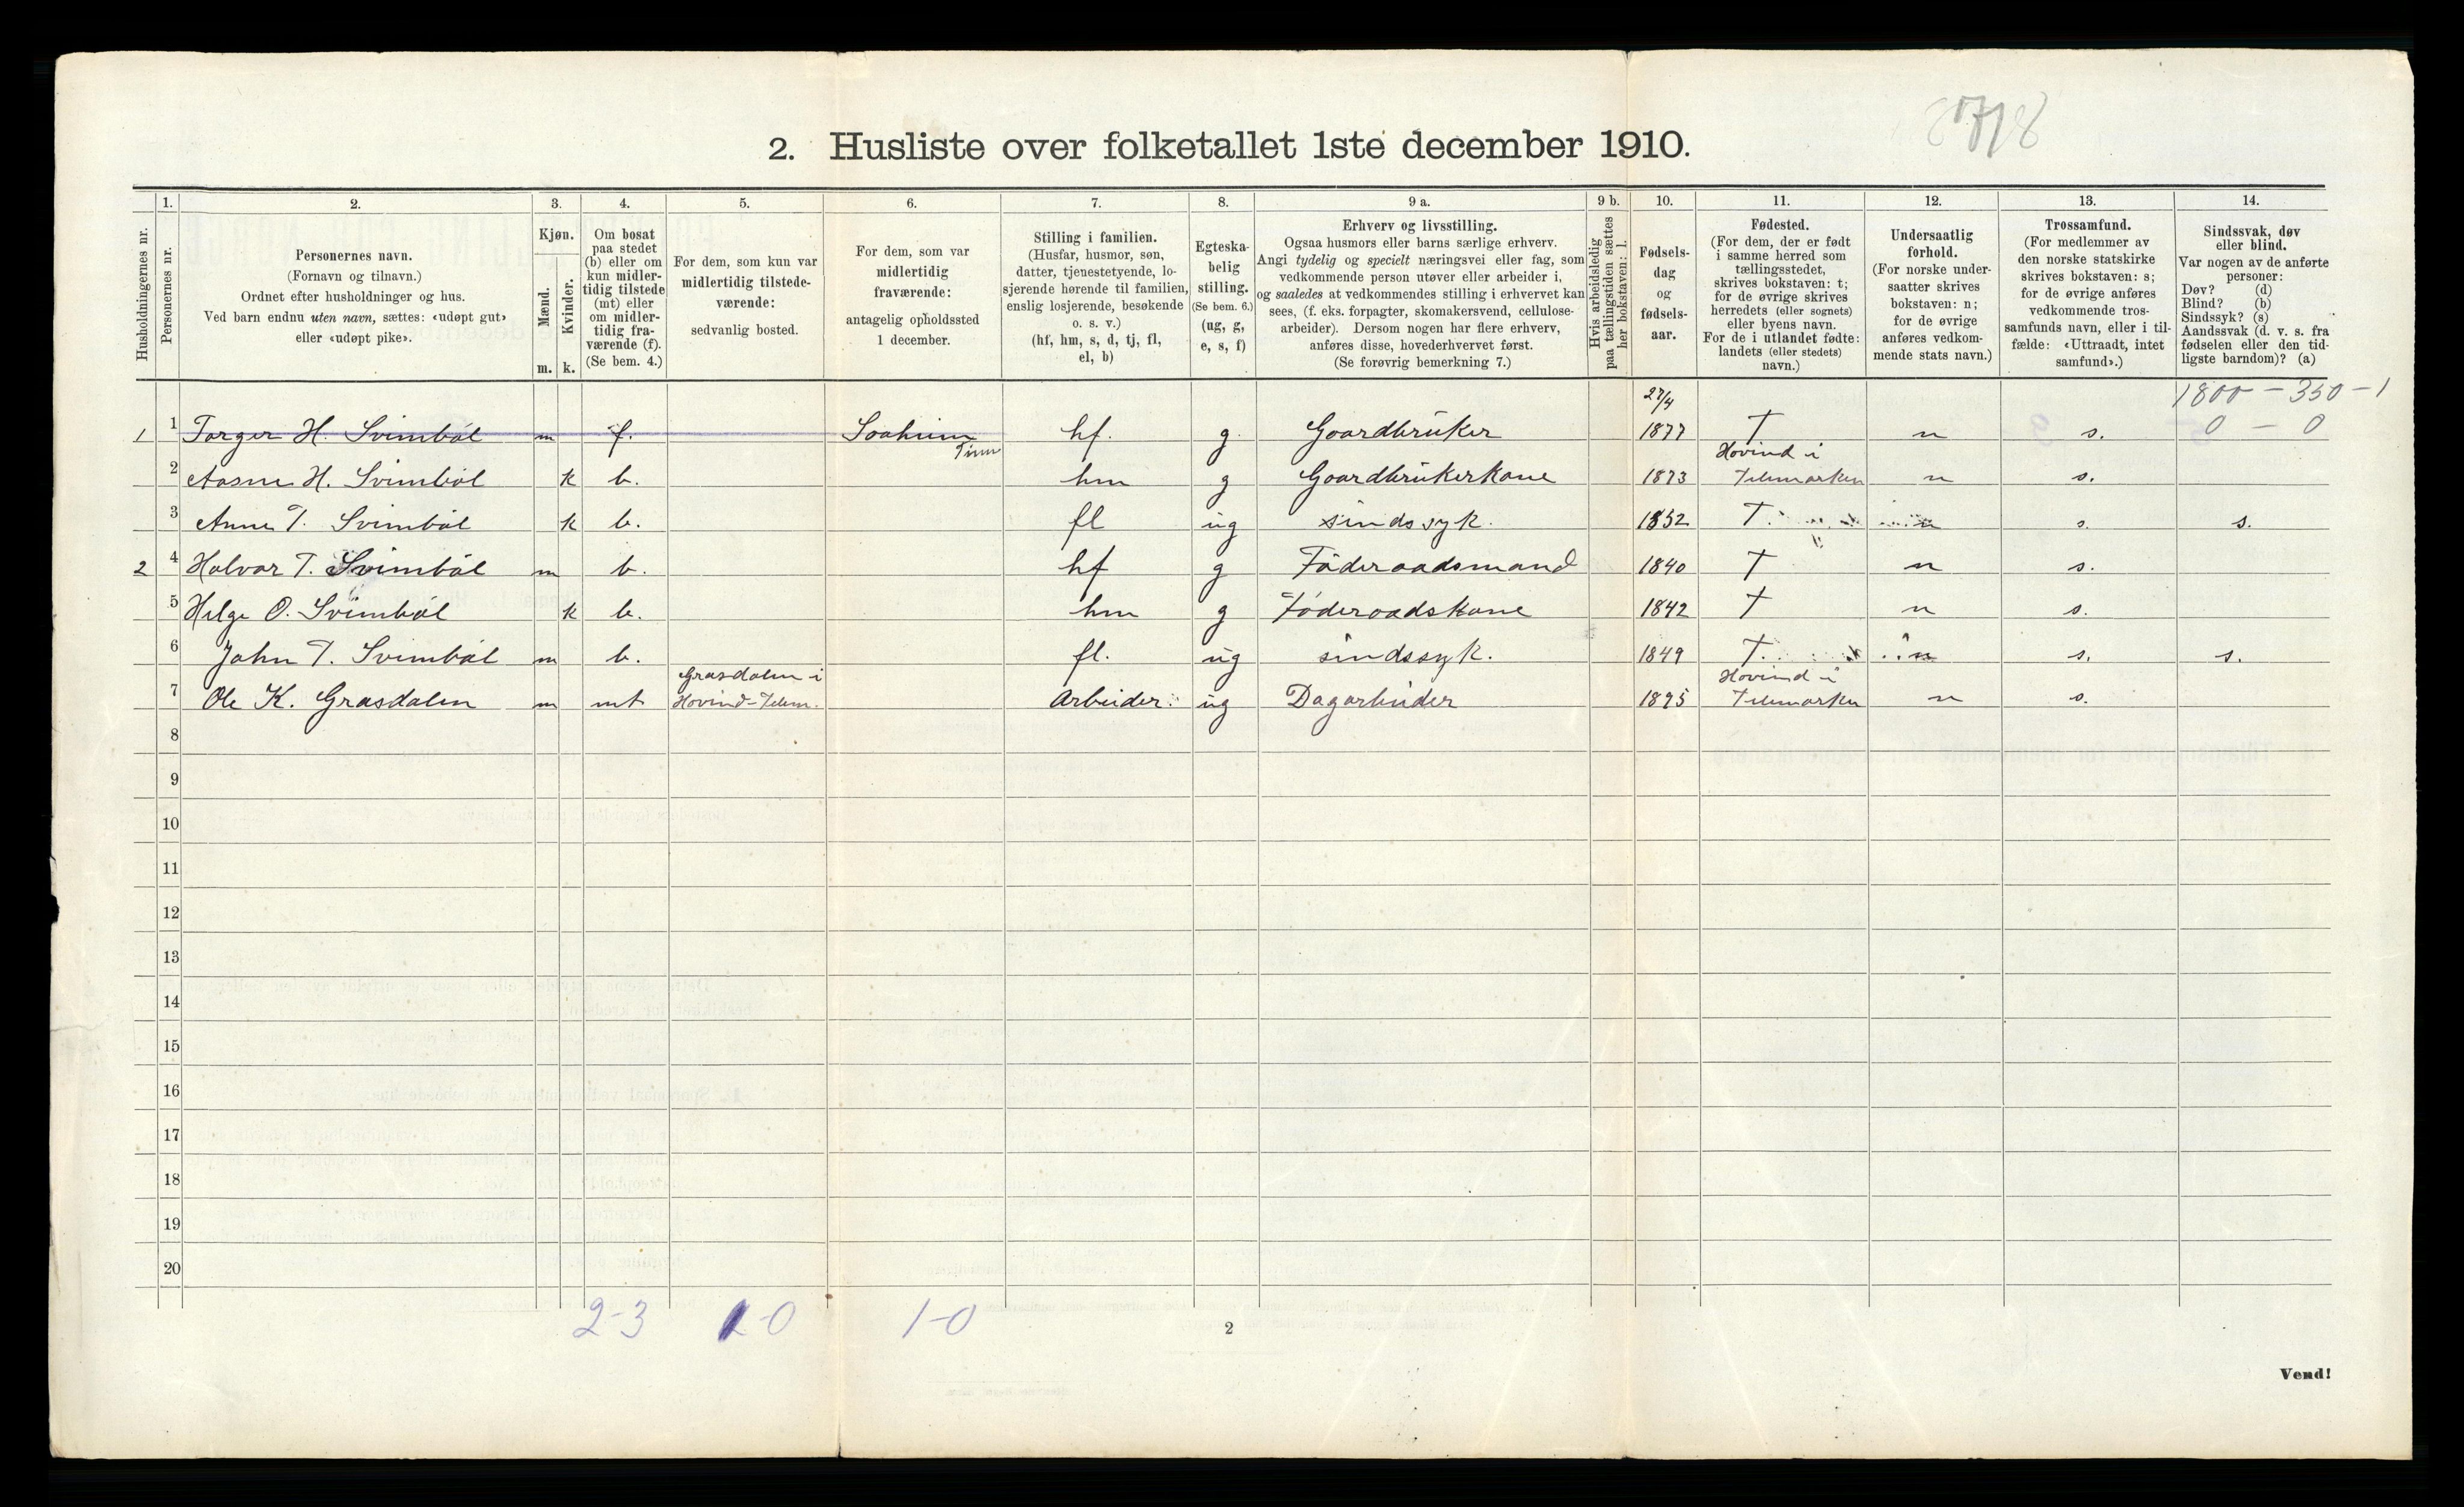 2. Husliste over folketallet 1ste december 1910.
Husholdningernes nr.
1.
Personernes nr.
2.
Personernes navn.
(Fornavn og tilnavn.)
Ordnet efter husholdninger og hus.
Ved barn endnu uten navn, sættes: «udøpt gut»
eller «udøpt pike».
3.
Kjøn.
Mænd.
Kvinder.
m. k.
4.
Om bosat
paa stedet
(b) eller om
kun midler-
tidig tilstede
(mt) eller
om midler-
tidig fra-
værende (f).
(Se bem. 4.)
5.
For dem, som kun var
midlertidig tilstede-
værende:
sedvanlig bosted.
6.
For dem, som var
midlertidig
fraværende:
antagelig opholdssted
1 december.
7.
Stilling i familien.
(Husfar, husmor, søn,
datter, tjenestetyende, lo-
sjerende hørende til familien,
enslig losjerende, besøkende
o. s. v.)
(hf, hm, s, d, tj, fl,
el, b)
8.
Egteska-
belig
stilling.
(Se bem. 6.)
(ug, g,
e, s, f)
9 a.
Erhverv og livsstilling.
Ogsaa husmors eller barns særlige erhverv.
Angi tydelig og specielt næringsvei eller fag, som
vedkommende person utøver eller arbeider i,
og saaledes at vedkommendes stilling i erhvervet kan
sees, (f. eks. forpagter, skomakersvend, cellulose-
arbeider). Dersom nogen har flere erhverv,
anføres disse, hovederhvervet først.
(Se forøvrig bemerkning 7.)
9 b.
Hvis arbeidsledig
paa tællingstiden sættes
her bokstaven: l.
10.
Fødsels-
dag
og
fødsels-
aar.
11.
Fødested.
(For dem, der er født
i samme herred som
tællingsstedet,
skrives bokstaven: t;
for de øvrige skrives
herredets (eller sognets)
eller byens navn.
For de i utlandet fødte:
landets (eller stedets)
navn.)
12.
Undersaatlig
forhold.
(For norske under-
saatter skrives
bokstaven: n;
for de øvrige
anføres vedkom-
mende stats navn.)
13.
Trossamfund.
(For medlemmer av
den norske statskirke
skrives bokstaven: s;
for de øvrige anføres
vedkommende tros-
samfunds navn, eller i til-
fælde: «Uttraadt, intet
samfund».)
14.
Sindssvak, døv
eller blind.
Var nogen av de anførte
personer:
Døv? (d)
Blind? (b)
Sindssyk? (s)
Aandssvak (d. v. s. fra
fødselen eller den tid-
ligste barndom)? (a)
1800 - 350 - 1
0 - 0
1 1 Torger H. Svimbøl m f. Soaheim Tinn hf. g. Goardbrüker 27/4 1877 T n s.
2 Aasne H. Svimbøl k b. hm g Goardbrükerkone 1873 Hovind i Telemarken n s.
3 Anne T. Svimbøl k b. fl ug sindssyk. 1852 T. n s. s.
2 4 Halvor T. Svimbøl m b. hf g Föderaadsmand 1840 T n s.
5 Helge O. Svimbøl k b. hm g Föderaadskone 1842 T n s.
6 John T. Svimbøl m b. fl. ug sindssyk. 1849 T. n s. s.
7 Ole K. Grasdalen m mt Grasdalen i Hovind-Telem. Arbeider ug Dagarbeider 1895 Hovind i Telemarken n s.
8
9
10
11
12
13
14
15
16
17
18
19
20
2-3 1-0 1-0
2
Vend!